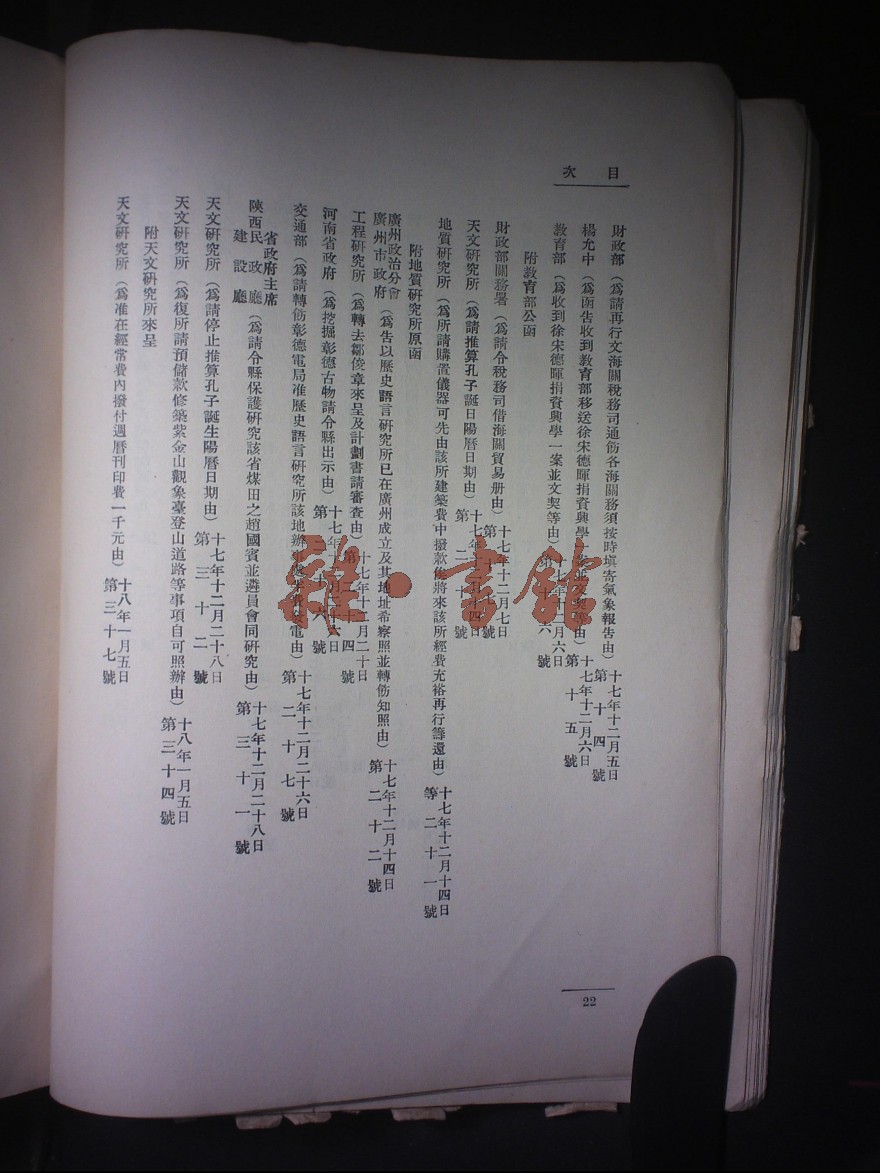 目次
財政部（為請再行文海關稅務司通飭各海關務須按時填寄氣象報告由）十七年十二月五日第十四號
楊允中（為函告收到教育部移送徐宋德暉捐資興學一案並文契等由）十七年十二月六日第十五號
教育部（為收到徐宋德暉捐資興學一案並文契等由）十七年十二月六日第十六號
附教育部公函
財政部關務署（為請令稅務司借海關貿易册由）十七年十二月七日第十號
天文研究所（為請推算孔子誕日陽曆日期由）十七年十二月十四日第二十號
地質研究所（為所請購置儀器可先由該所建築費中撥款俟將來該所經費充裕再行籌還由）十七年十二月十四日等二十一號
附地質研究所原函
廣州政治分會廣州市政府（為告以歷史語言研究所已在廣州成立及其地址希察照並轉飭知照由）十七年十二月十四日第二十二號
工程研究所（為轉去鄒俊章來呈及計劃書請審查由）十七年十二月二十日第二十四號
河南省政府（為挖掘彰德古物請令縣出示由）十七年十二月二十六日第二十六號
交通部（為請轉飭彰德電局准歷史語言研究所該地辦事處半費發電由）十七年十二月二十六日第二十七號
省政府主席
陝西民政廳建設廳（為請令縣保護研究該省煤田之趙國賓並遴員會同研究由）十七年十二月二十八日第三十一號
天文研究所（為請停止推算孔子誕生陽曆日期由）十七年十二月二十八日第三十二號
天文研究所（為復所請預儲款修築紫金山觀象臺登山道路等事項自可照辦由）十八年一月五日第三十四號
附天文研究所來呈
天文研究所（為准在經常費內撥付週曆刊印費一千元由）十八年一月五日第三十七號
22
雜·書館